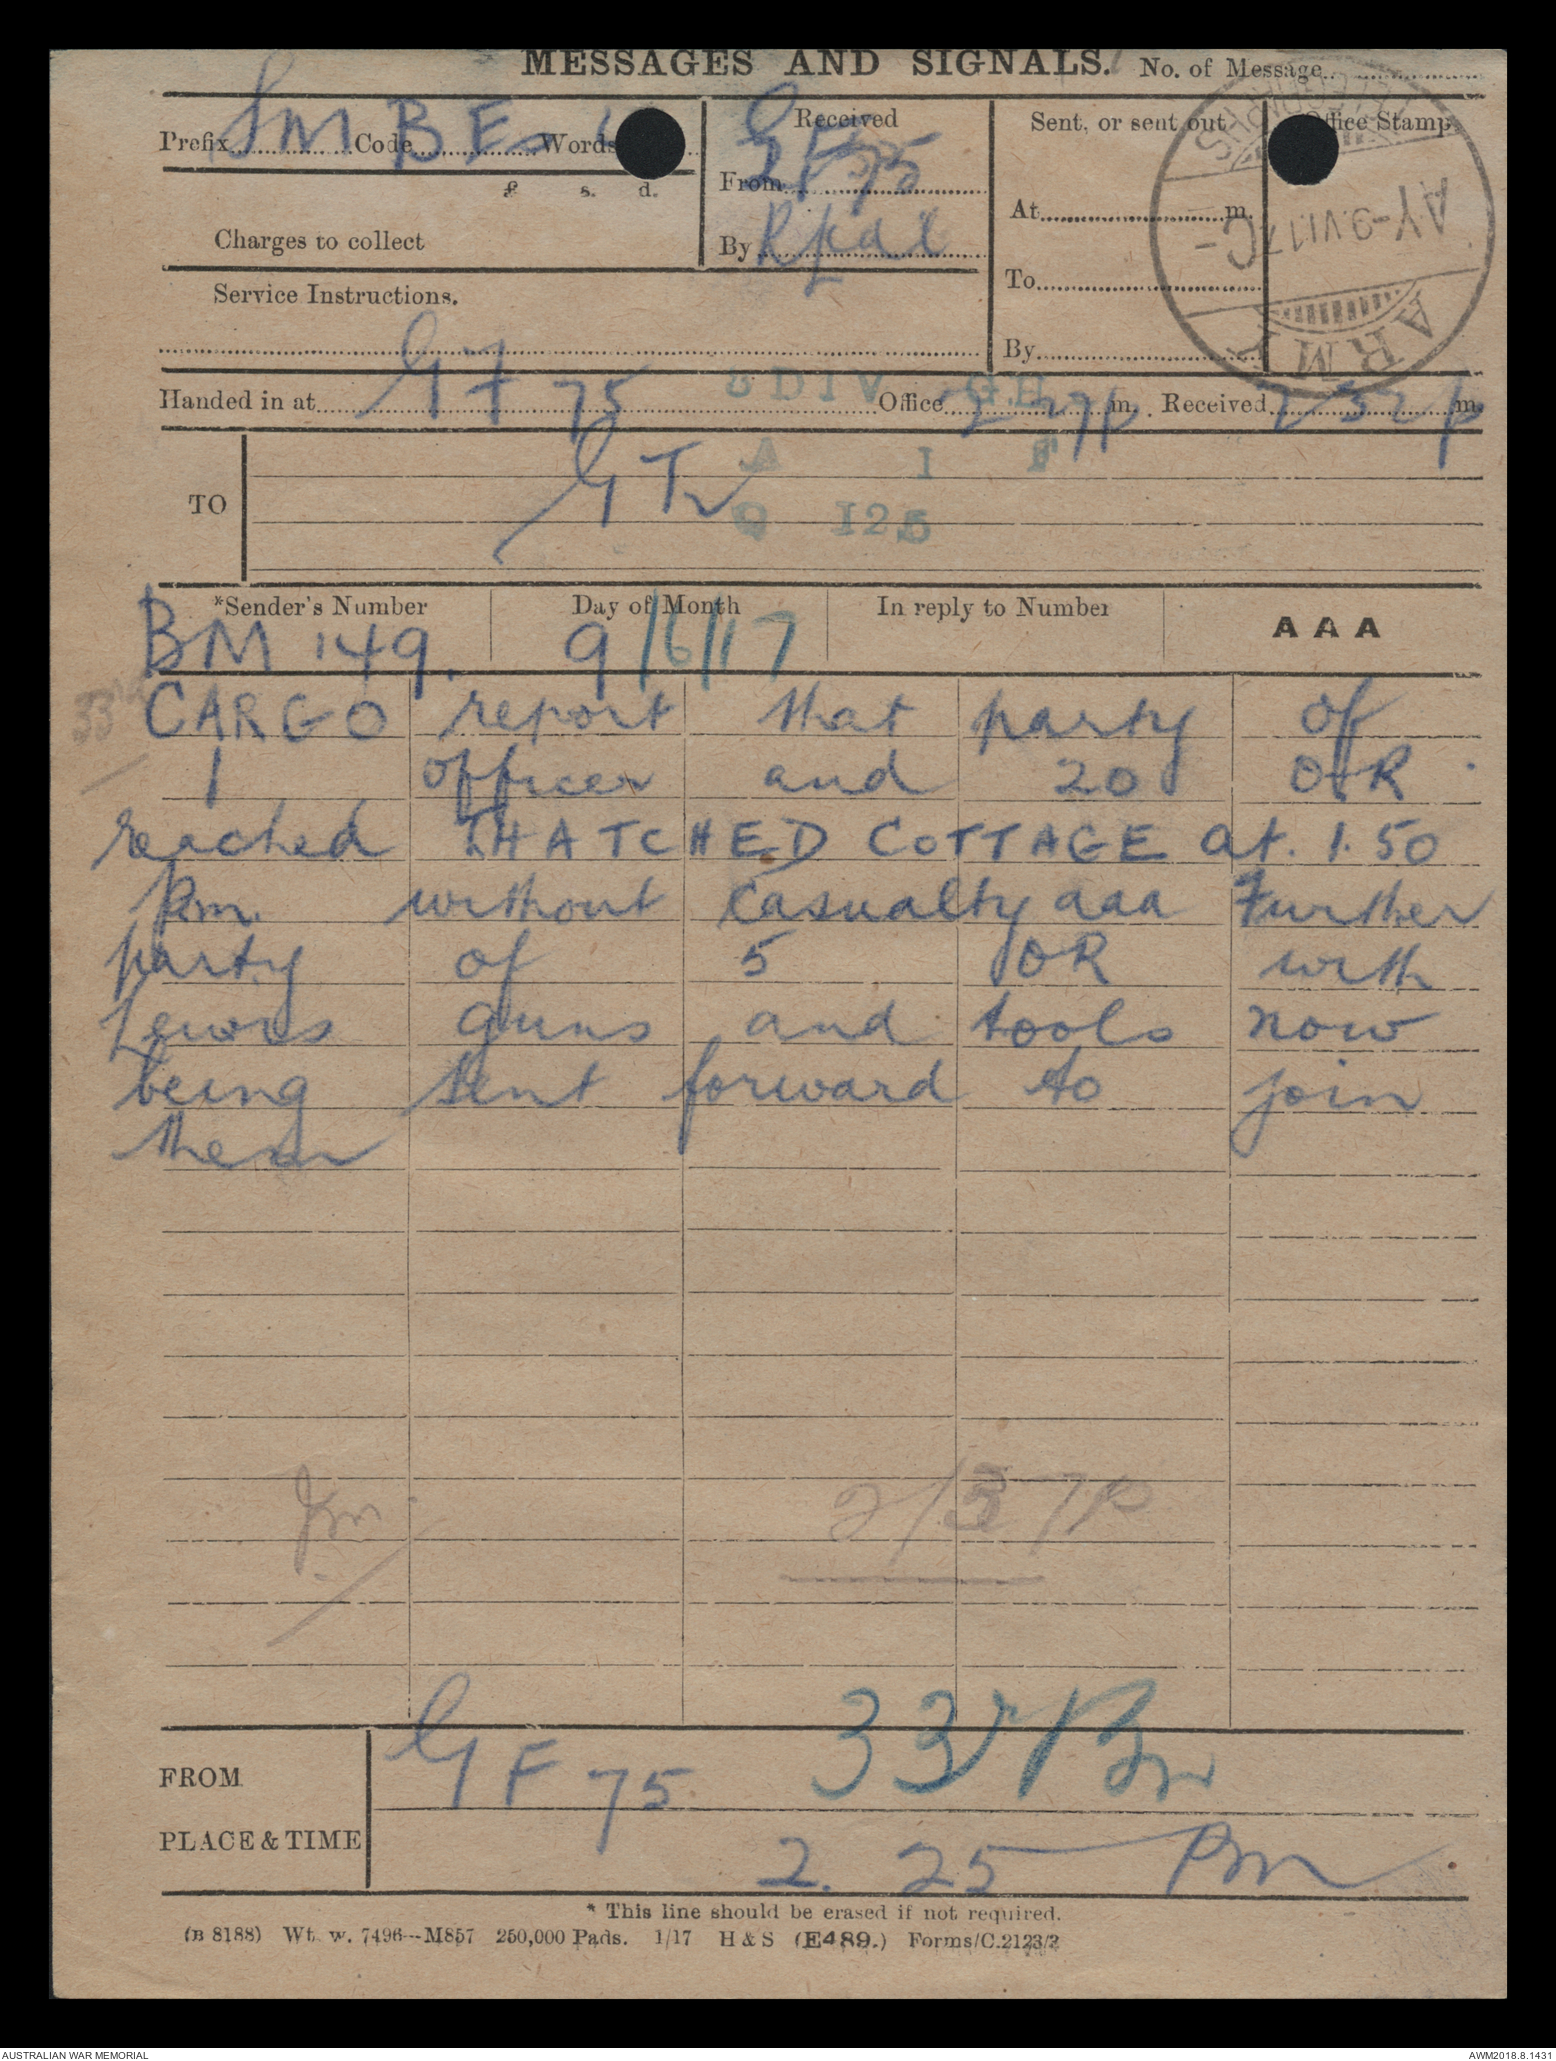 MESSAGES AND SIGNALS. No. of Message
Prefix SM Code BE Words
Received
Sent, or sent out
Office Stamp
£ s. d.
From GF75
At m.
Charges to collect
By
To
Service Instructions.
By
ARMY TELEGRAPHS
AY-9.VI.17 C-
Handed in at GF 75 Office 2 27p m. Received 2 32p m.
DIV
A I F
I25
TO
*Sender's Number Day of Month In reply to Number AAA
BM 149. 9/6/17
33rd
CARGO report that party of
1 officer and 20 OR
reached THATCHED COTTAGE at. 1.50
Pm. without casualty aaa Further
party of 5 OR with
Lewis guns and tools now
being sent forward to join
them
2/37P
FROM GF 75 33r Bn
PLACE & TIME 2. 25 Pm
* This line should be erased if not required.
(B 8188) Wt. w. 7496—M857 250,000 Pads. 1/17 H & S (E489.) Forms/C.2123/3
AUSTRALIAN WAR MEMORIAL AWM2018.8.1431